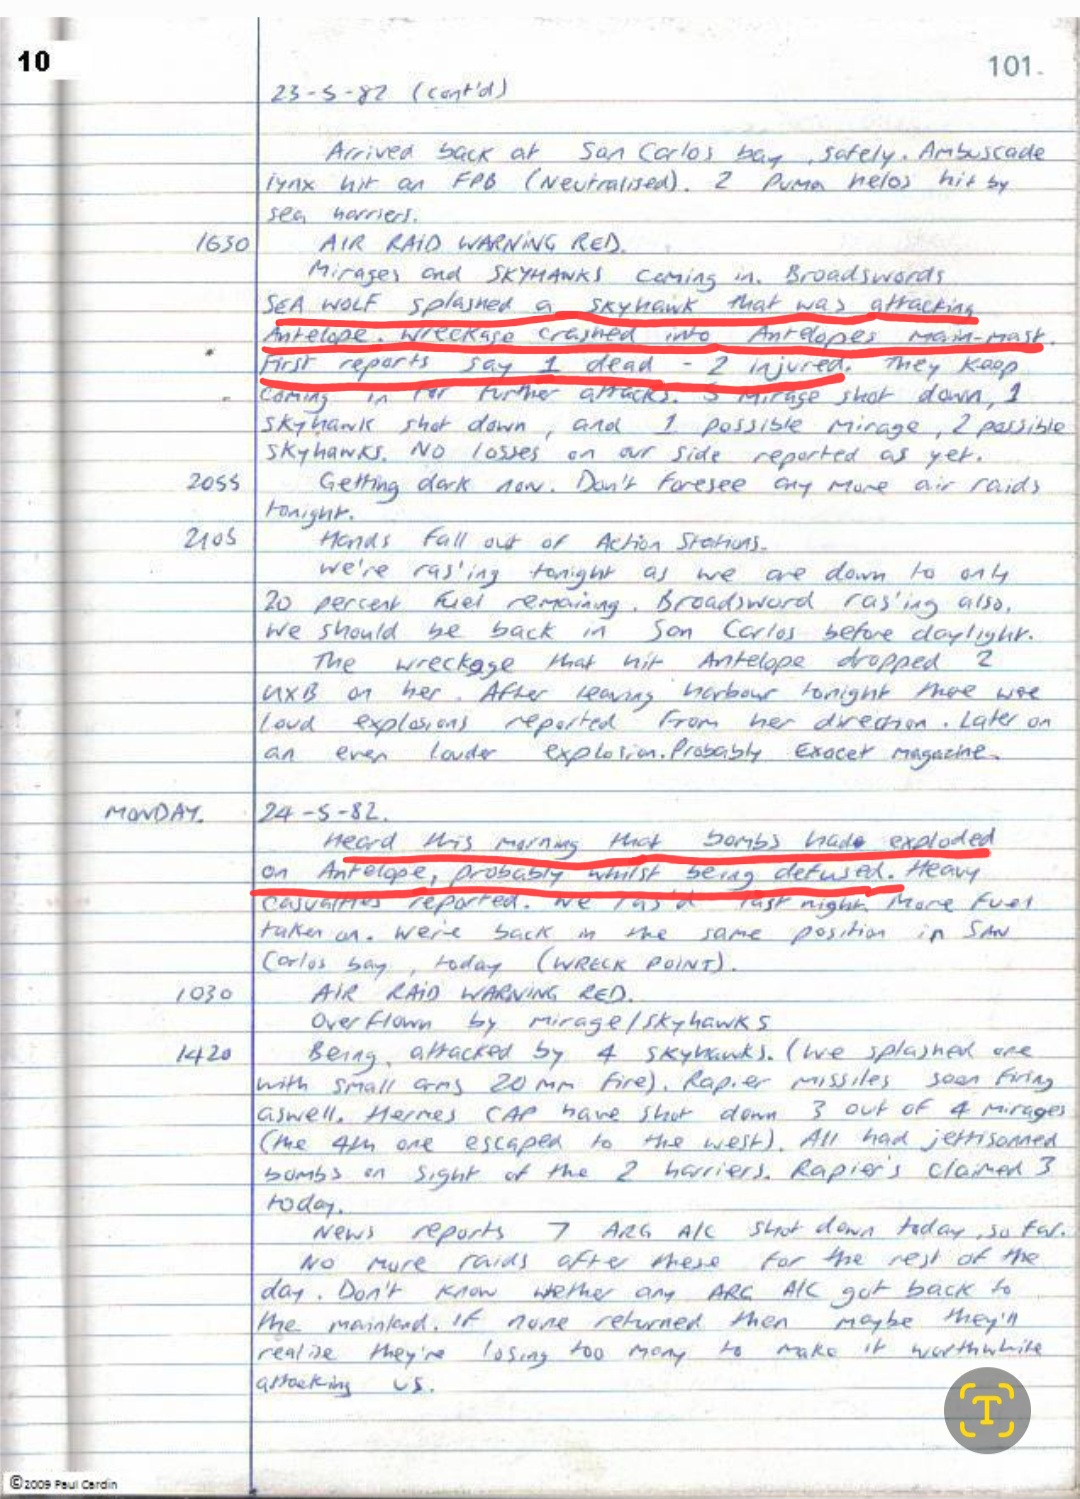 10
101.
23-5-82 (cont'd)
Arrived back at San Carlos bay, safely. Ambuscade
lynx hit an FPB (Neutralised). 2 Puma helos hit by
sea harriers.
1630 AIR RAID WARNING RED.
Mirages and SKYHAWKS coming in. Broadswords
SEA WOLF splashed a skyhawk that was attacking
Antelope. Wreckage crashed into Antelopes main-mast.
First reports say 1 dead - 2 injured. They keep
coming in for further attacks. 5 Mirage shot down, 1
skyhawk shot down, and 1 possible Mirage, 2 possible
skyhawks. No losses on our side reported as yet.
2055 Getting dark now. Don't foresee any more air raids
tonight.
2105 Hands fall out of Action Stations.
We're ras'ing tonight as we are down to only
20 percent fuel remaining. Broadsword ras'ing also.
We should be back in San Carlos before daylight.
The wreckage that hit Antelope dropped 2
UXB on her. After leaving harbour tonight there were
loud explosions reported from her direction. Later on
an even louder explosion. Probably Exocet magazine.
MONDAY. 24-5-82.
Heard this morning that bombs had exploded
on Antelope, probably whilst being defused. Heavy
casualties reported. We ras'd last night. More fuel
taken on. We're back in the same position in SAN
Carlos bay, today (WRECK POINT).
1030 AIR RAID WARNING RED.
Overflown by mirage/skyhawks
1420 Being attacked by 4 skyhawks. (We splashed one
with small arms 20mm fire). Rapier missiles seen firing
aswell. Hermes CAP have shot down 3 out of 4 mirages
(the 4th one escaped to the west). All had jettisonned
bombs on sight of the 2 harriers. Rapier's claimed 3
today.
News reports 7 ARG A/C shot down today, so far.
No more raids after these for the rest of the
day. Don't know whether any ARG A/C got back to
the mainland. If none returned then maybe they'll
realise they're losing too many to make it worthwhile
attacking us.
©2009 Paul Cardin